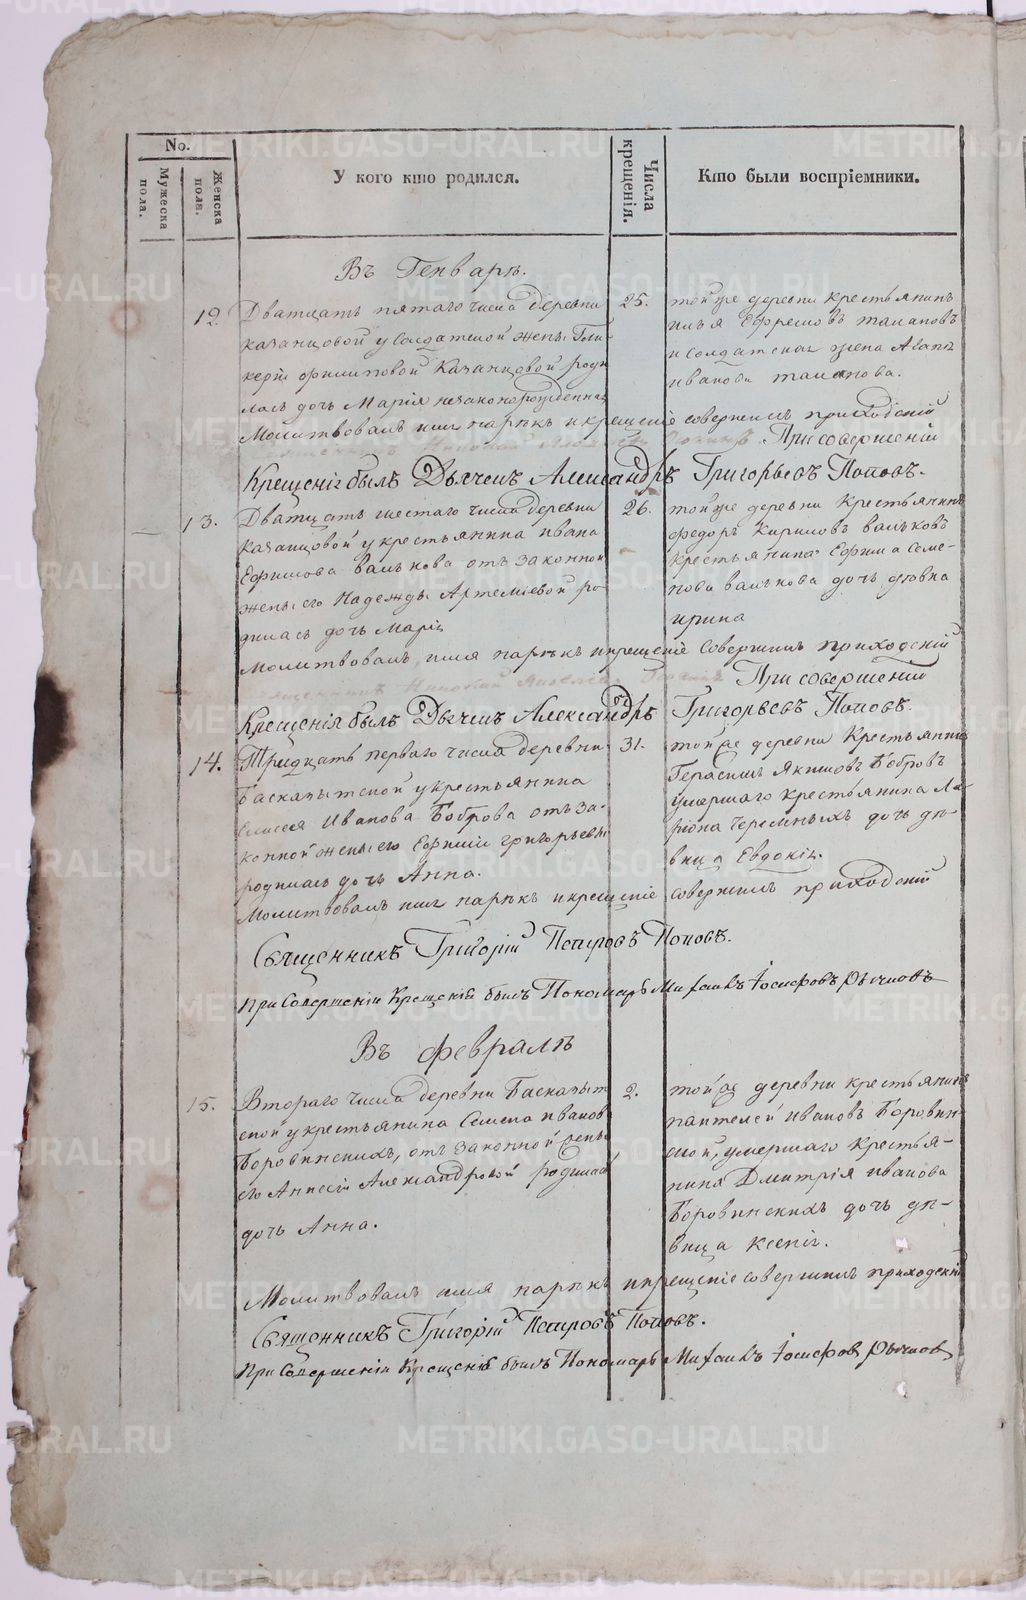 No.
Мужеска пола.
Женска пола.
У кого кто родился.
Числа крещенія.
Кто были воспріемники.
Въ Генварѣ.
12. Дватцать пятаго числа деревни
казанцовой у солдатской жены Гли-
керіи филиповой Казанцовой роди
лась дочь Марія незаконорожденная
25.
тойже деревни крестьянинъ
илья Ефремовъ талановъ
и солдатская жена Агапія
иванова таланова.
Молитвовалъ имя нарѣкъ и крещеніе совершилъ приходскій
При совершеніи
Крещенія былъ Дьячецъ Александръ Григорьевъ Поповъ.
13. Дватцать шестаго числа деревни
Казанцовой у крестьянина ивана
Ефимова валькова отъ законной
жены его Надежды Артеміевой ро-
дилась дочь Марія
26.
тойже деревни Крестьянинъ
федоръ Кириловъ вальковъ
крестьянина Ефима Семе-
нова валькова дочь дѣвка
ирина
Молитвовалъ, имя нарѣкъ и крещеніе совершилъ приходскій
При совершеніи
Крещенія былъ Дьячецъ Александръ Григорьевъ Поповъ.
14. Тридцать перваго числа деревни
Баскалытской у крестьянина
Елисея Иванова Боброва отъ за-
конной жены его Ефиміи григорьевы
родилась дочь Анна.
31.
тойже деревни Крестьянинъ
Герасимъ Якимовъ Бобровъ
умершаго крестьянина Ла-
ріона Черемныхъ дочь дѣ-
вица Евдокія.
Молитвовалъ имя нарѣкъ и крещеніе совершилъ приходскій
Священникъ Григорій Петровъ Поповъ.
При Совершеніи Крещенія былъ Пономарь Михаилъ Іосифовъ Рычковъ
Въ февралѣ
15. Втораго числа деревни Баскалыт
ской у крестьянина Семена иванова
Боровинскихъ, отъ законной жены
его Анисіи Александровой родилась
дочь Анна.
2.
тойже деревни крестьянинъ
пантелей ивановъ Боровин-
ской, умершаго крестья-
нина Дмитрія иванова
Боровинскихъ дочь дѣ-
вица ксенія.
Молитвовалъ имя нарѣкъ и крещеніе совершилъ приходскій
Священникъ Григорій Петровъ Поповъ.
При Совершеніи Крещенія былъ Пономарь Михаилъ Іосифовъ Рычковъ